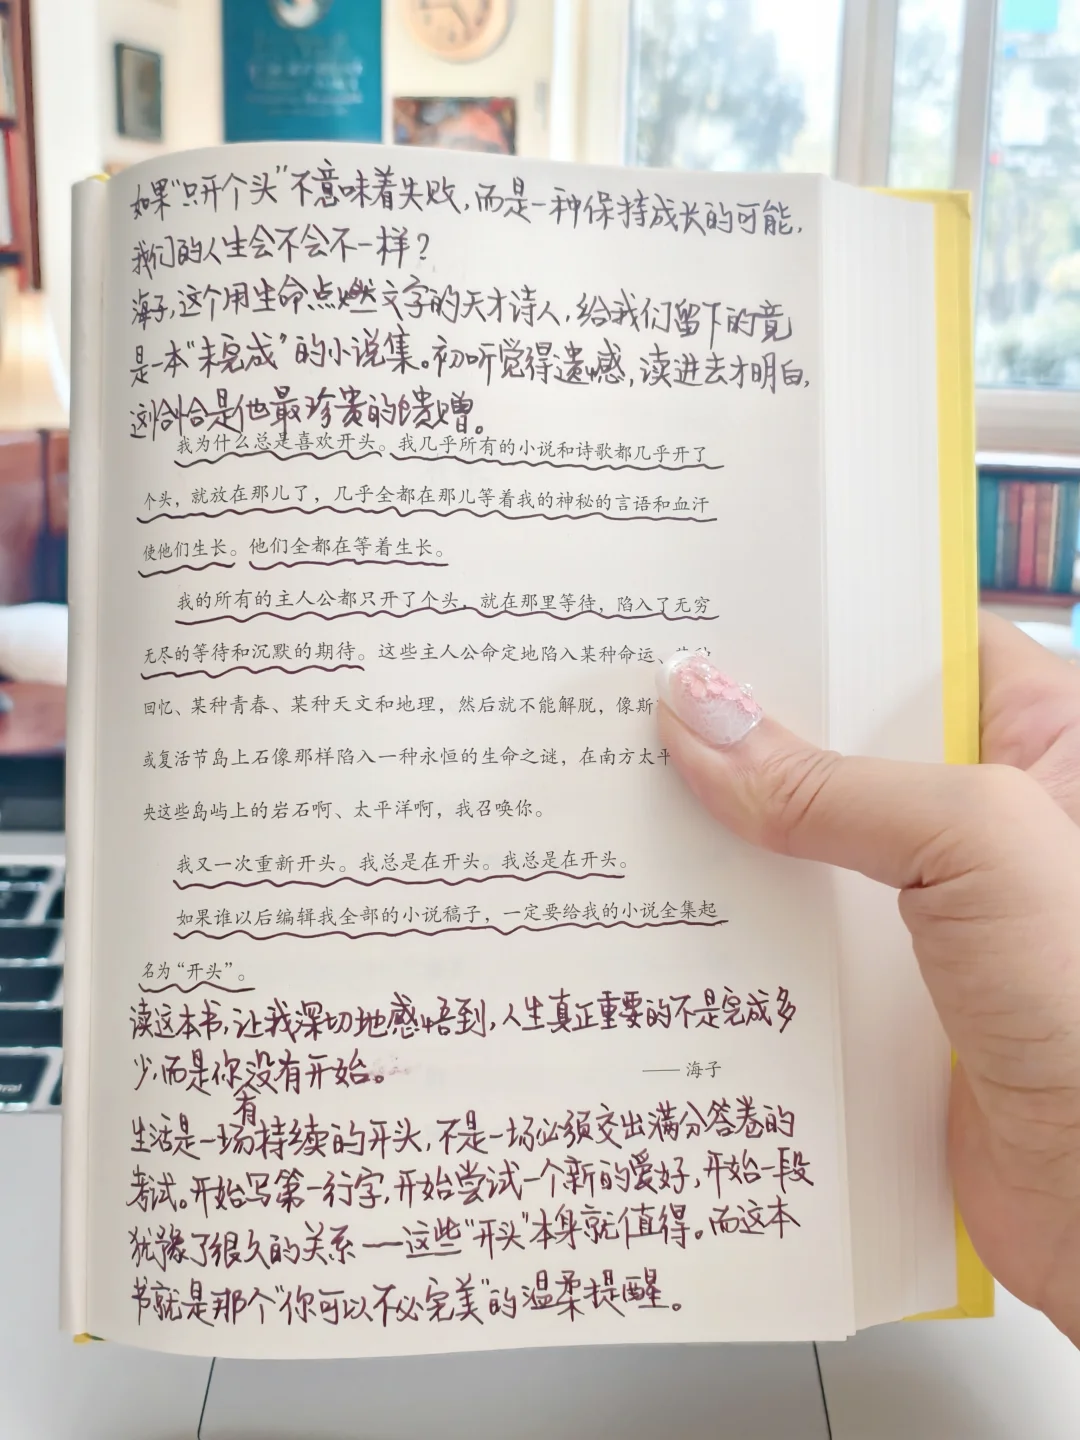 如果“只开个头”不意味着失败,而是一种保持成长的可能,
我们的人生会不会不一样?
海子,这个用生命点燃文字的天才诗人,给我们留下的竟
是一本“未完成”的小说集。初听觉得遗憾,读进去才明白,
这恰恰是他最珍贵的馈赠。
我为什么总是喜欢开头。我几乎所有的小说和诗歌都几乎开了
个头，就放在那儿了，几乎全都在那儿等着我的神秘的言语和血汗
使他们生长。他们全都在等着生长。
我的所有的主人公都只开了个头，就在那里等待，陷入了无穷
无尽的等待和沉默的期待。这些主人公命定地陷入某种命运、
回忆、某种青春、某种天文和地理，然后就不能解脱，像斯
或复活节岛上石像那样陷入一种永恒的生命之谜，在南方太平
央这些岛屿上的岩石啊、太平洋啊，我召唤你。
我又一次重新开头。我总是在开头。我总是在开头。
如果谁以后编辑我全部的小说稿子，一定要给我的小说全集起
名为“开头”。
读这本书,让我深切地感悟到,人生真正重要的不是完成多
少,而是你有没有开始。
——海子
生活是一场持续的开头,不是一场必须交出满分答卷的
考试。开始写第一行字,开始尝试一个新的爱好,开始一段
犹豫了很久的关系——这些“开头”本身就值得。而这本
书就是那个“你可以不必完美”的温柔提醒。